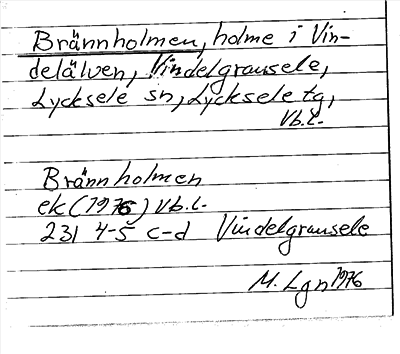 Brännholmen, holme i Vin-
delälven, Vindelgransele,
Lycksele sn, Lycksele tg,
Vb.l.
Brännholmen
ek (1976) Vb.l.
231 4-5 c-d Vindelgransele
M. Lgn 1976